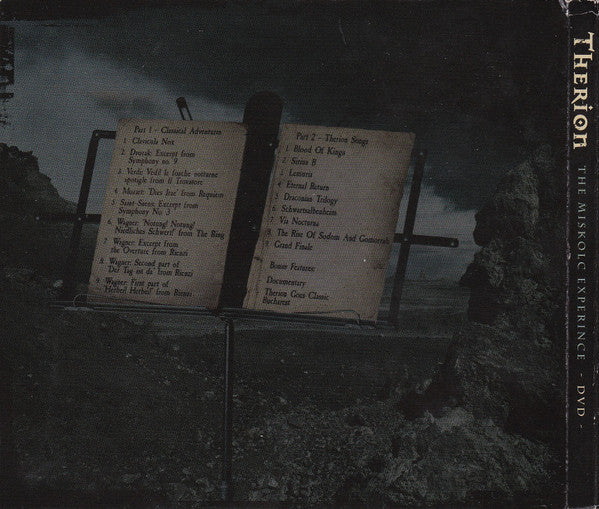 Part 1 - Classical Adventures
1. Clavicula Nox
2. Dvorak: Excerpt from
Symphony no. 9
3. Verdi: Vedi! le fosche notturne
spotigle from Il Trovatore
4. Mozart: "Dies Irae" from Requiem
5. Saint-Saens: Excerpt from
Symphony No. 3
6. Wagner: "Notung! Notung!
Niedliches Schwert!" from The Ring
7. Wagner: Excerpt from
the Overture from Rienzi
8. Wagner: Second part of
"Der Tag ist da" from Rienzi
9. Wagner: First part of
"Herbei! Herbei!" from Rienzi
Part 2 - Therion Songs
1. Blood Of Kingu
2. Sirius B
3. Lemuria
4. Eternal Return
5. Draconian Trilogy
6. Schwartzalbenheim
7. Via Nocturna
8. The Rise Of Sodom And Gomorrah
9. Grand Finale
Bonus Features:
Documentary
Therion Goes Classic
Bucharest
Therion
THE MISKOLC EXPERINCE - DVD -